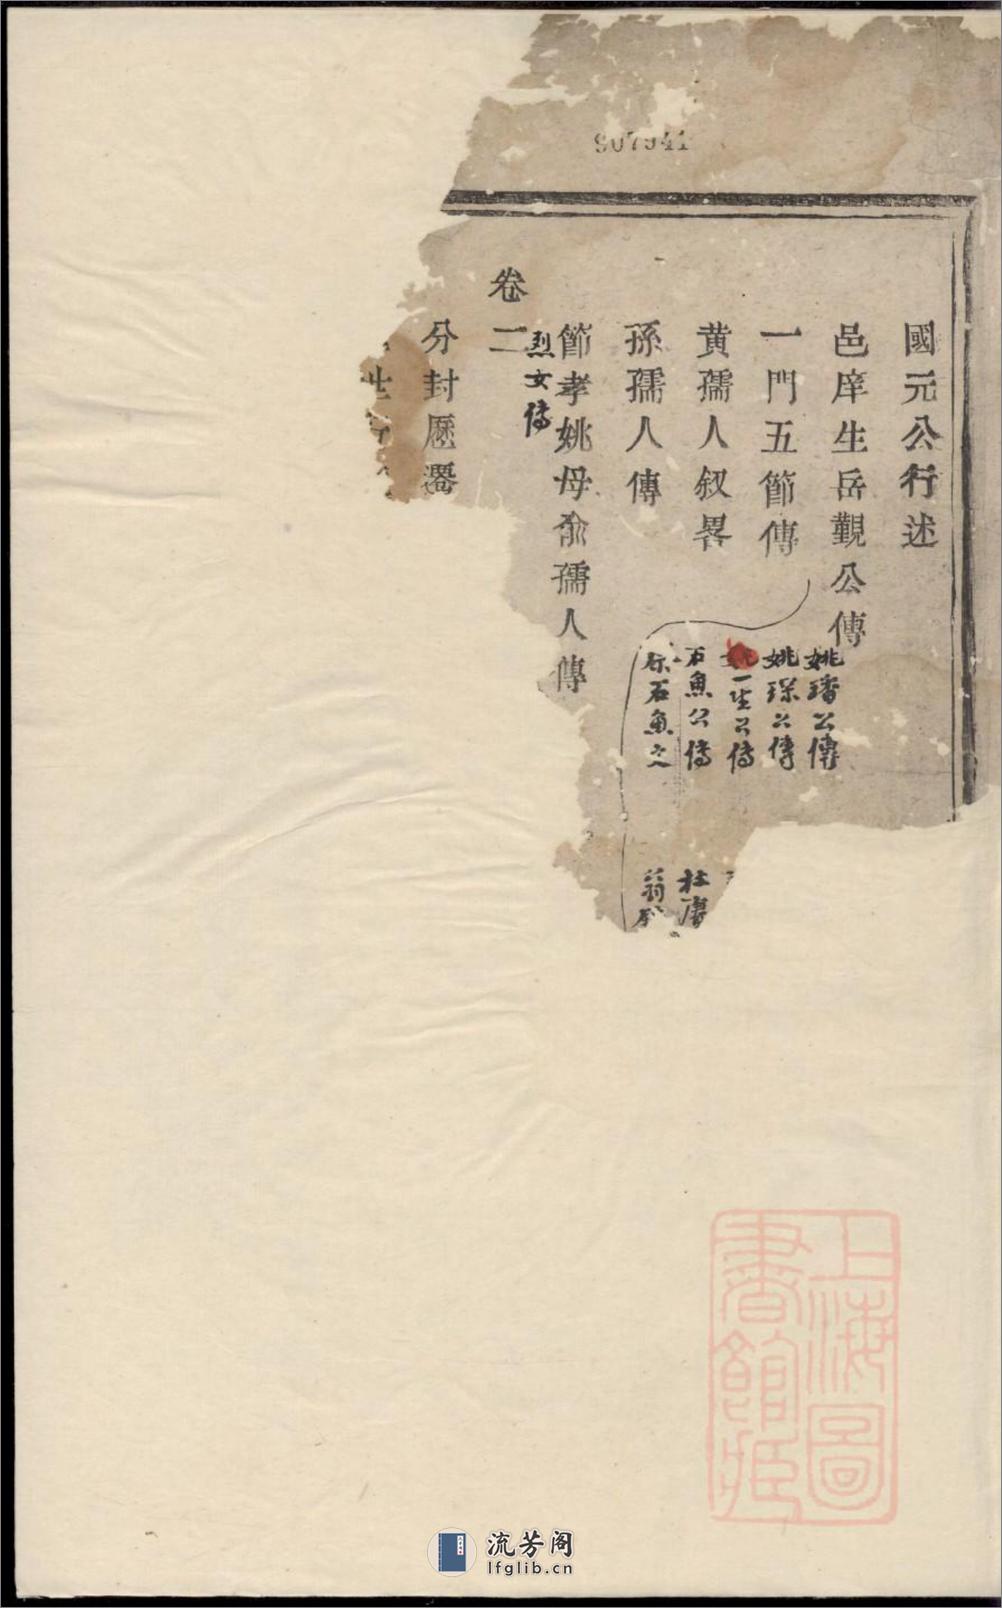 907941
國元公行述
邑庠生岳觀公傳
一門五節傳
黄孺人叙畧
孫孺人傳
節孝姚母俞孺人傳
烈女傳
卷二
分封歷遷
姚璠公傳
姚琛公傳
一生公傳
石魚公傳
石魚
上海圖
書館藏
流芳阁
lfglib.cn